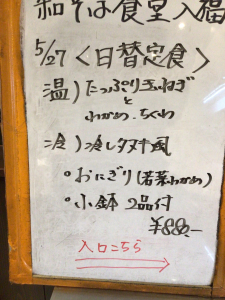 和そば食堂入福
5/27 〈日替定食〉
温) たっぷり玉ねぎ
と
わかめ、ちくわ
冷) 冷しタヌキ風
・おにぎり(若菜わかめ)
・小鉢 2品付
¥880-
入口こちら